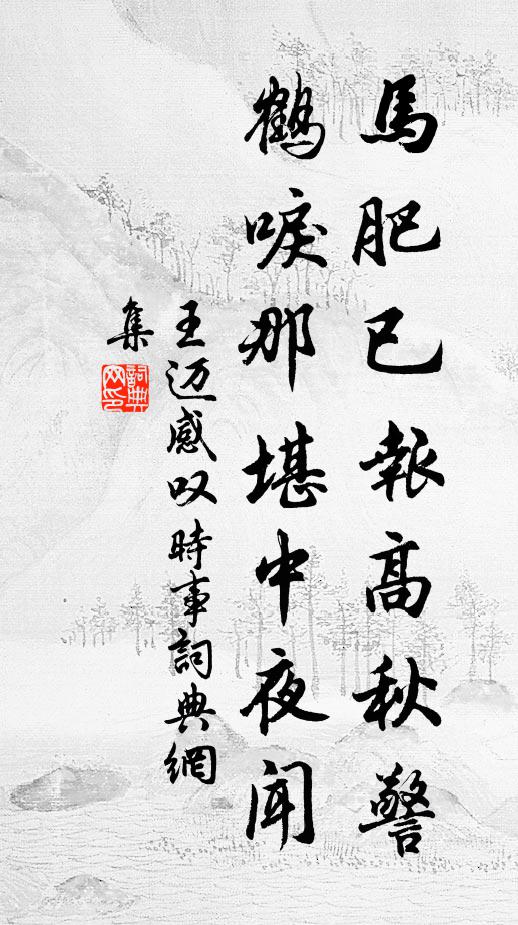 馬肥已報高秋警
鶴唳那堪中夜聞
王迈感叹時事詞典網
集
詞典
网印